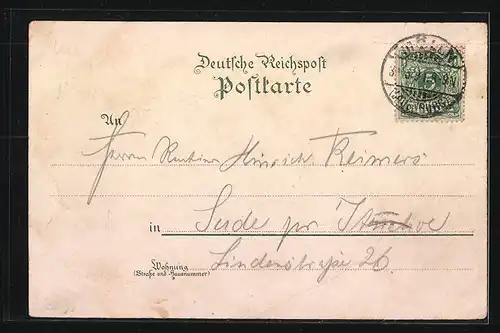 Deutsche Reichspost
Postkarte
An
Herrn Rentier Hinrich Reimers
in Sude pr Itzehoe
Lindenstraße 26
Wohnung
(Straße und Hausnummer)
5